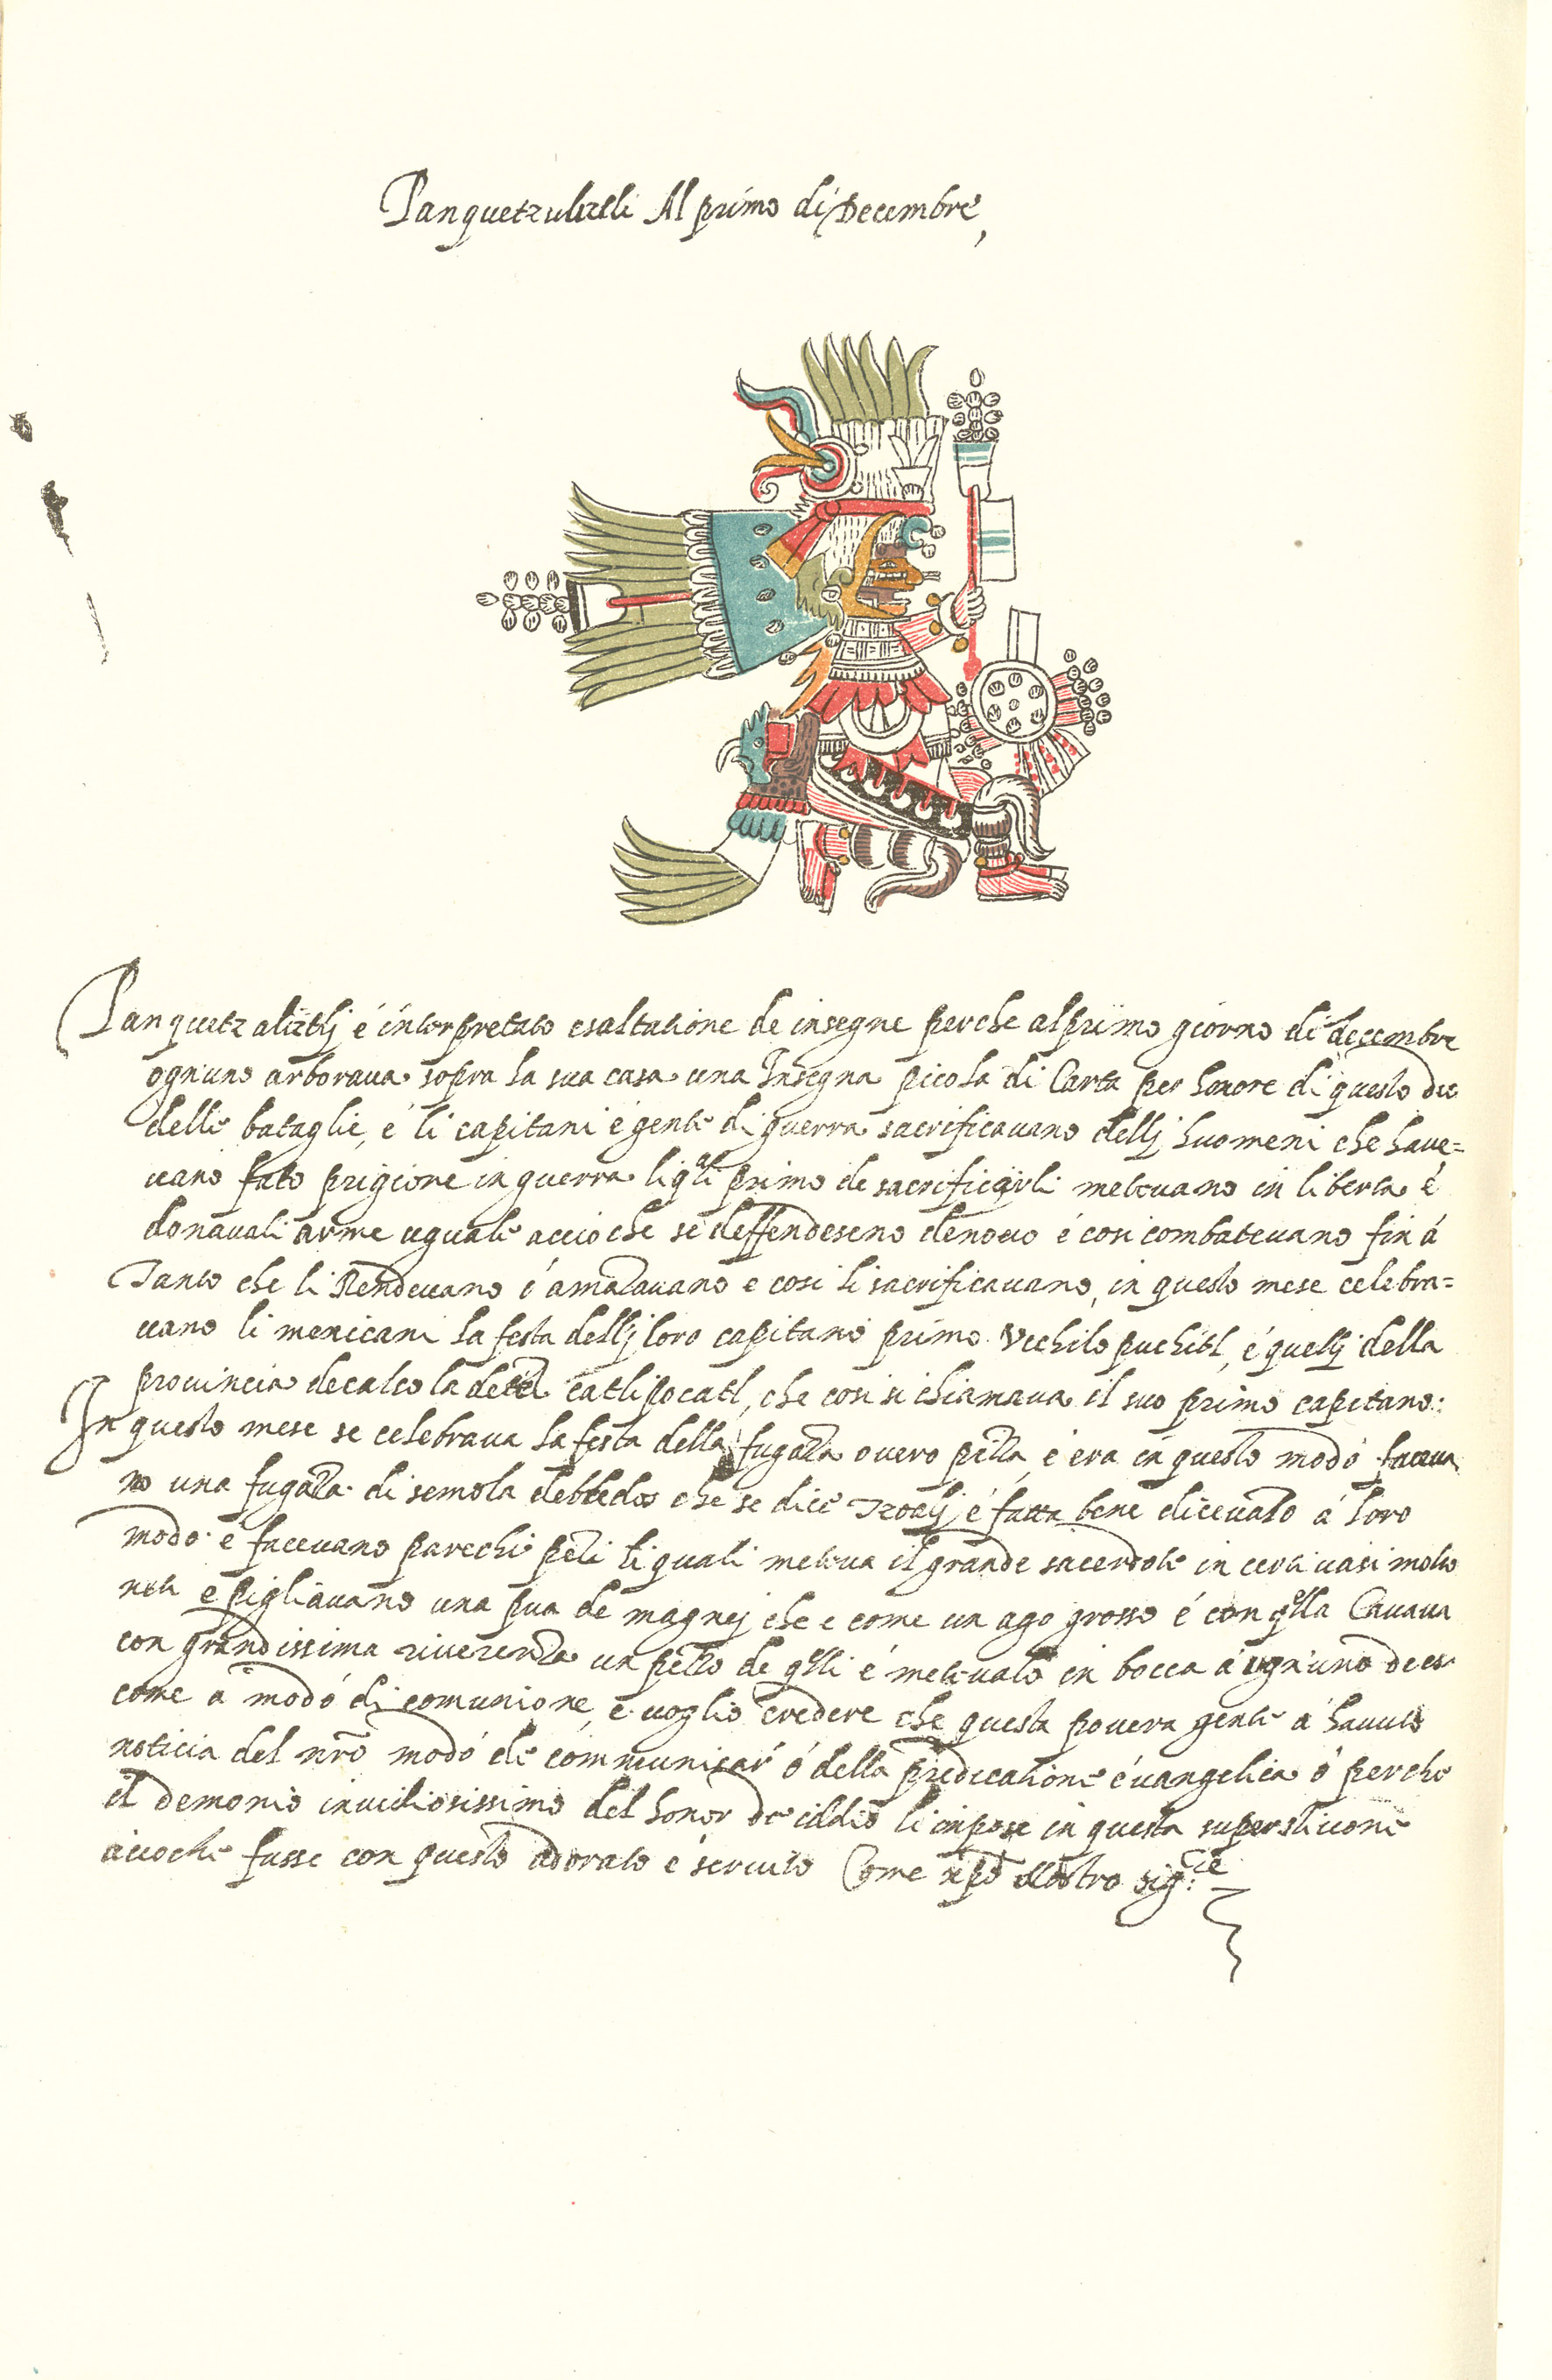 Panquetzaliztli Al primo di Decembre,
Panquetzaliztlj é interpretato esaltatione de insegne perche al primo giorno di decembre
ogn'uno arboraua sopra la sua casa una Insegna picola di Carta per honore di questo dio
delle bataglie, é li capitani é gente di guerra sacrificauano dellj huomeni che haue=
uano fato prigione in guerra li qali primo de sacrificarli meteuano in liberta é
donauali arme uguale accio che se deffendeseno denouo é cosi combateuano fin á
Tanto che li Rendeuano ó amazauano e cosi li sacrificauano, in questo mese celebra=
uano li mexicani la festa dellj loro capitano primo Vichilopuchitl, é quellj della
prouincia de calco la de tezcatlipocatl, che cosi si chiamaua il suo primo capitano:
In questo mese se celebraua la festa della fugazza ouero pizza, é era in questo modo faceua
no una fugazza di semola de bledos che se dice Tzoalj é fatta bene diceualo á loro
modo é faceuano parechi pezi li quali meteua il grande sacerdote in certi uasi molto
neti e pigliauano una pua de magnej che e come un ago grosso é con qlla Cauaua
con grandissima riuerenza un pezzo de qlli é meteualo in bocca á ogn'uno de es
come a modo di comunione, e uoglio credere che questa pouera gente á hauuto
noticia del nro modo de communicar ó della predicatione éuangelica ó perche
il demonio inuidiosissimo del honor de iddio li impose in questa superstitione
accioche fusse con questo adorato é seruito Come xpo Nostro sig.re